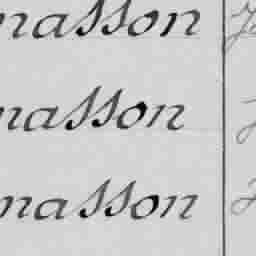 nasson
nasson
nasson